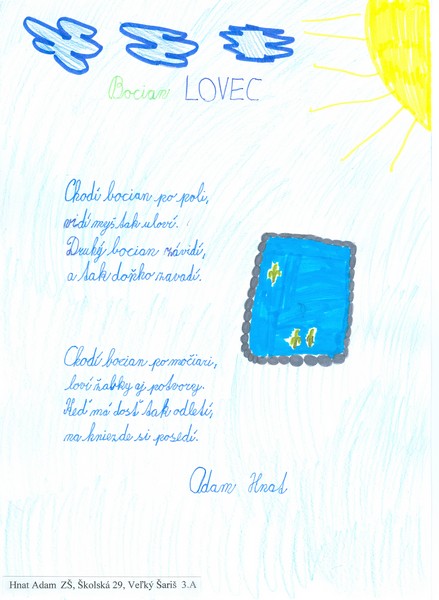 Bocian LOVEC
Chodí bocian po poli,
vidí myš tak uloví.
Druhý bocian závidí,
a tak doňho zavadí.
Chodí bocian po močiari,
loví žabky aj potvory.
Keď má dosť tak odletí,
na hniezde si posedí.
Adam Hnat
Hnat Adam ZŠ, Školská 29, Veľký Šariš 3.A